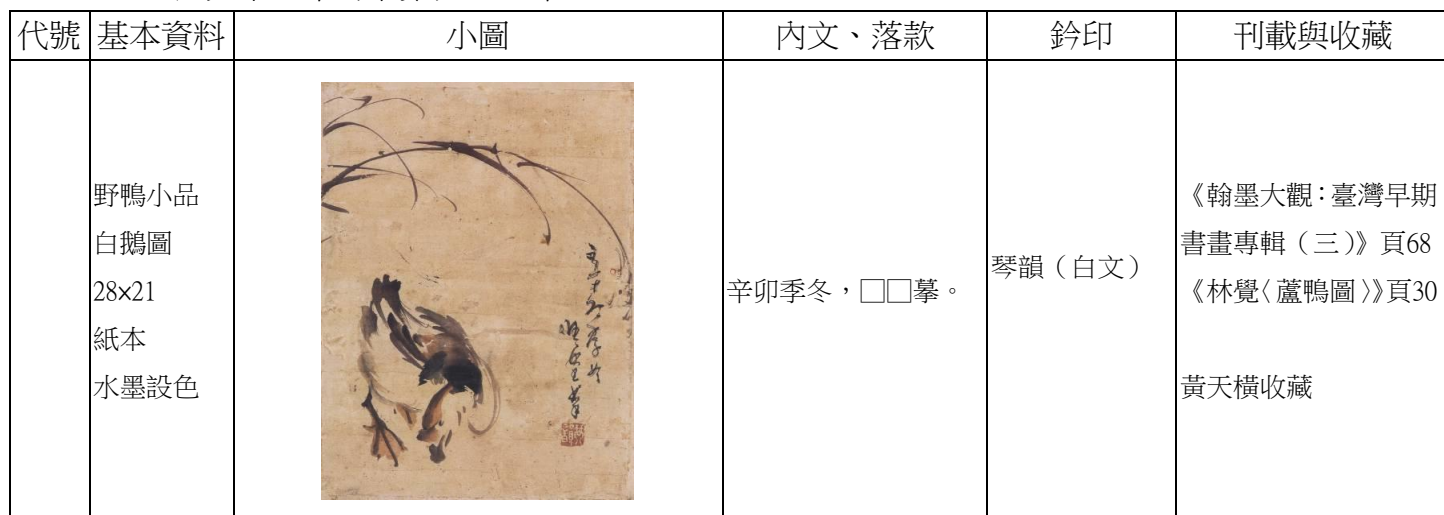 代號 基本資料 小圖 內文、落款 鈐印 刊載與收藏
野鴨小品
白鵝圖
28×21
紙本
水墨設色
辛卯季冬，□□摹。
琴韻（白文）
《翰墨大觀：臺灣早期
書畫專輯（三）》頁68
《林覺〈蘆鴨圖〉》頁30
黃天橫收藏